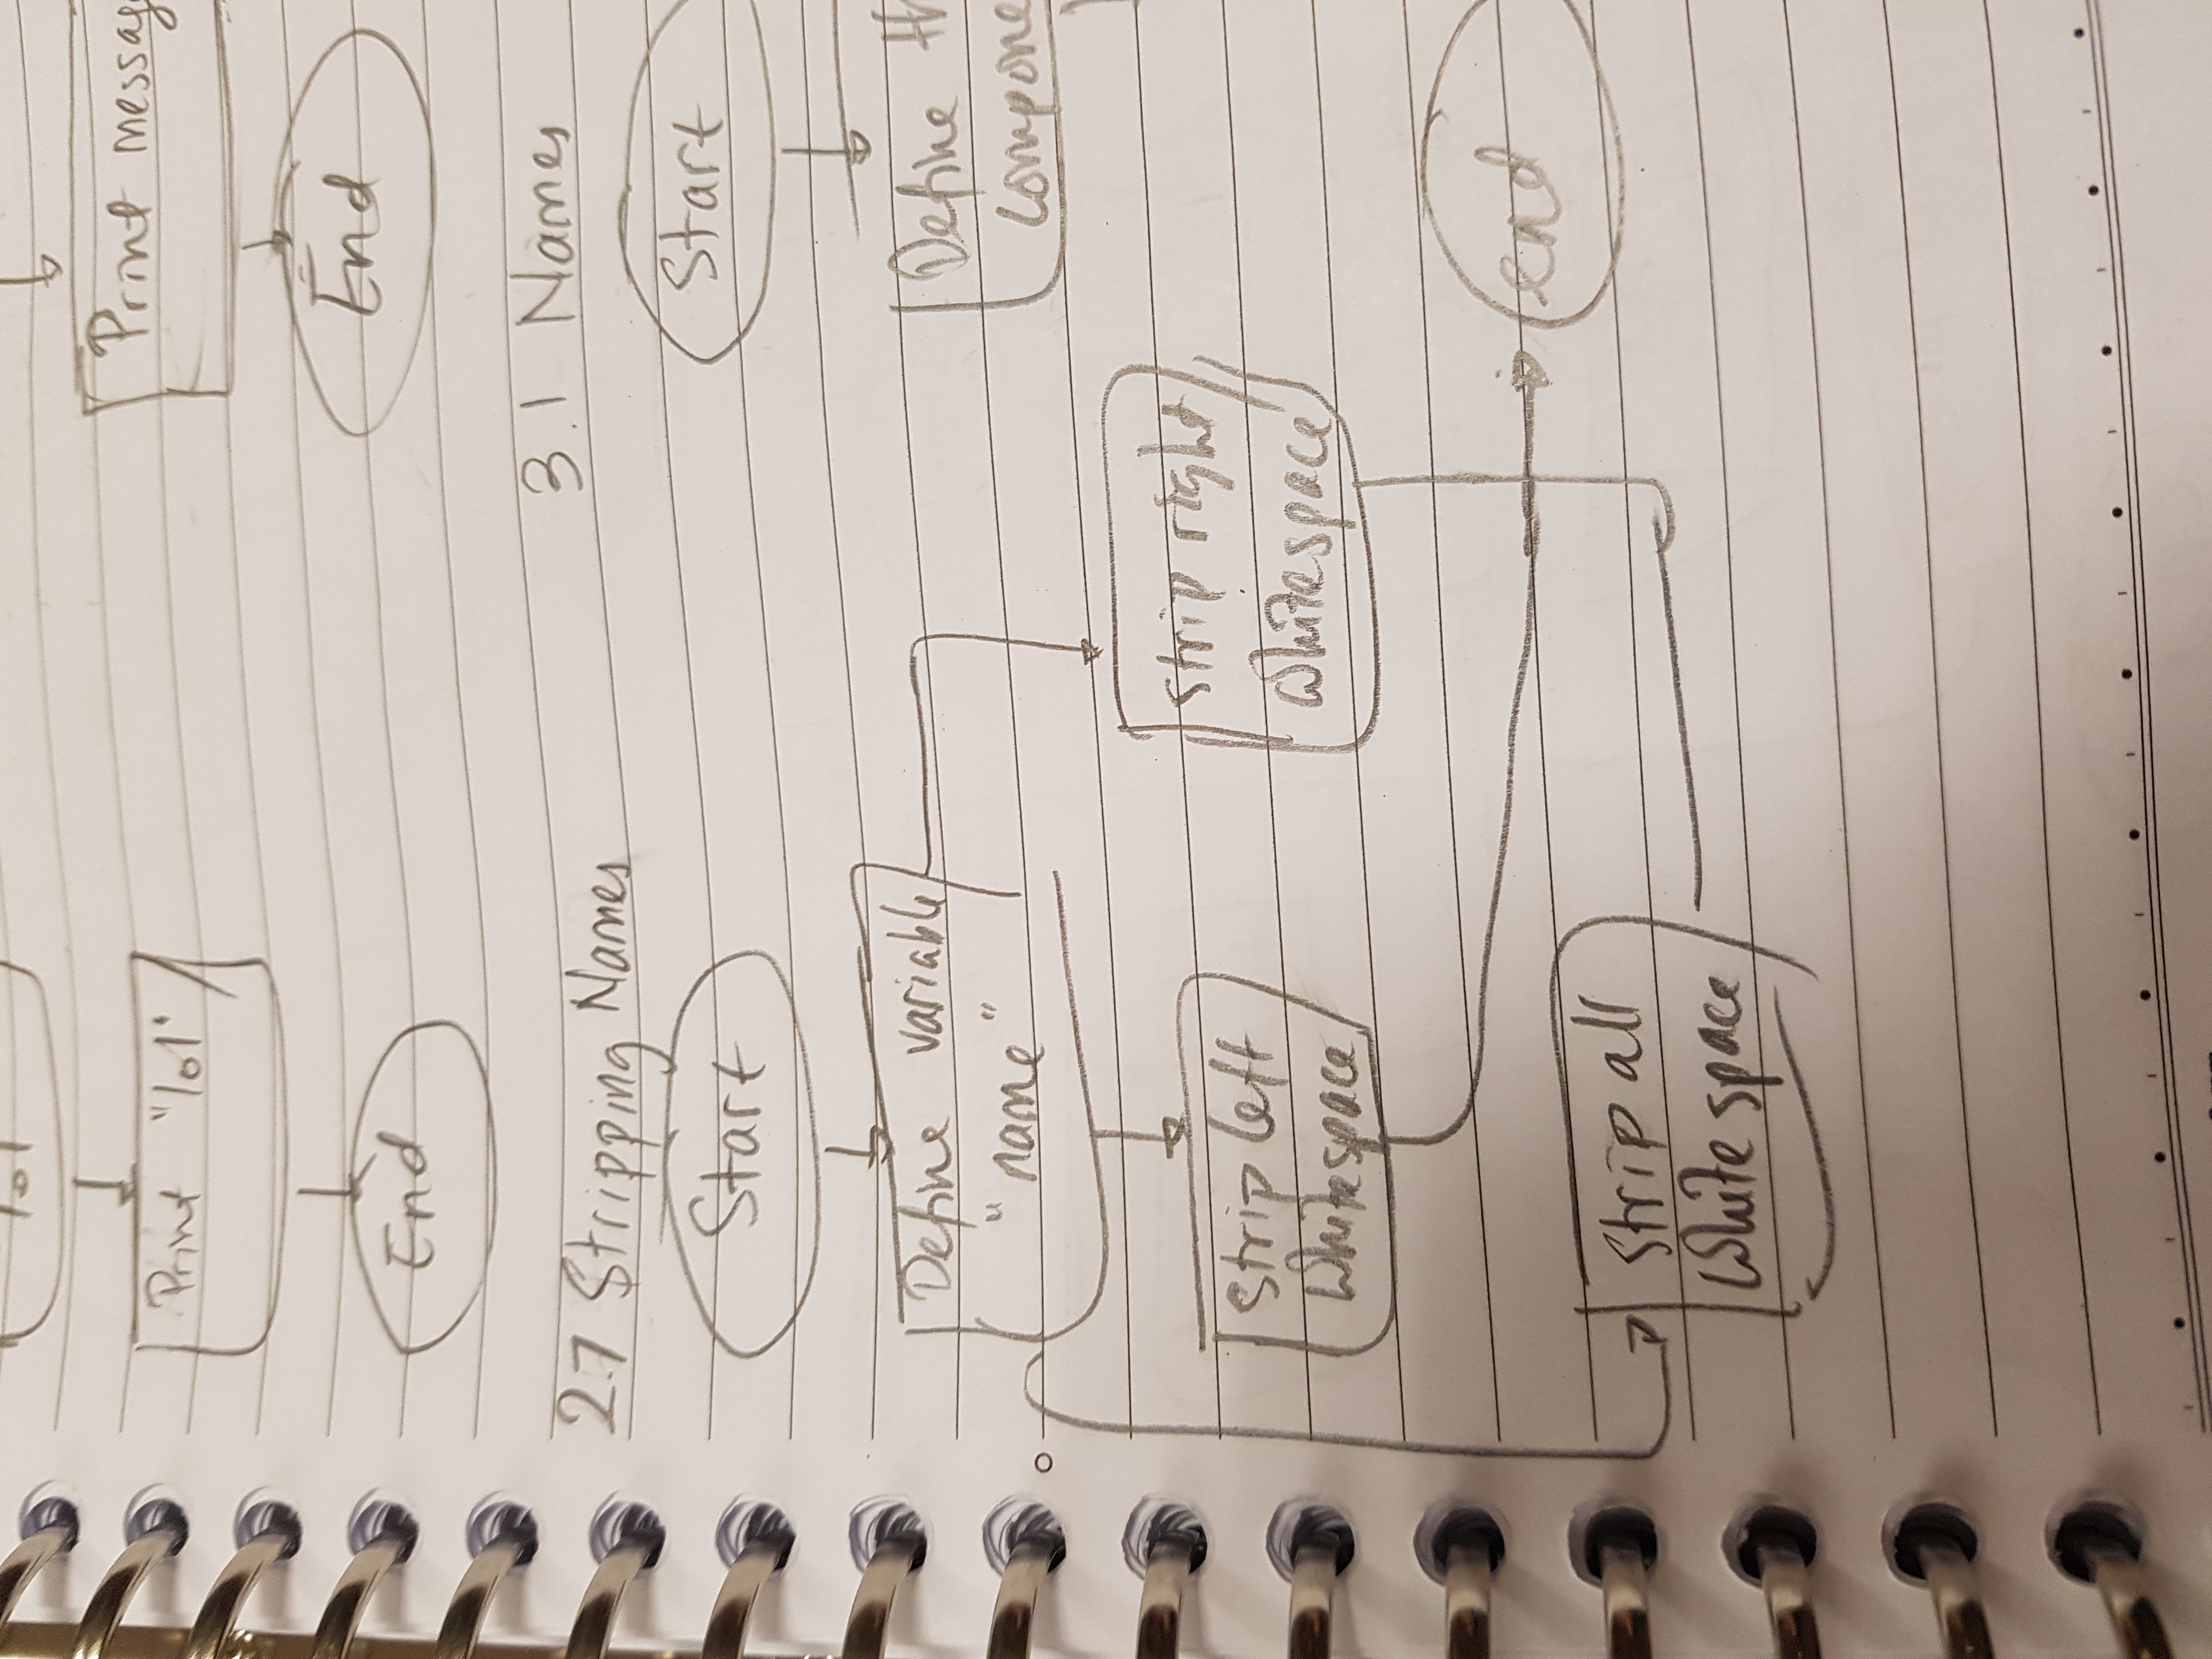 lol
Print "lol"
End
Print messag
End
2.7 Stripping Names
Start
Define variable
"name"
Strip left
Whitespace
Strip right
Whitespace
Strip all
White space
end
3.1 Names
Start
Define th
compone